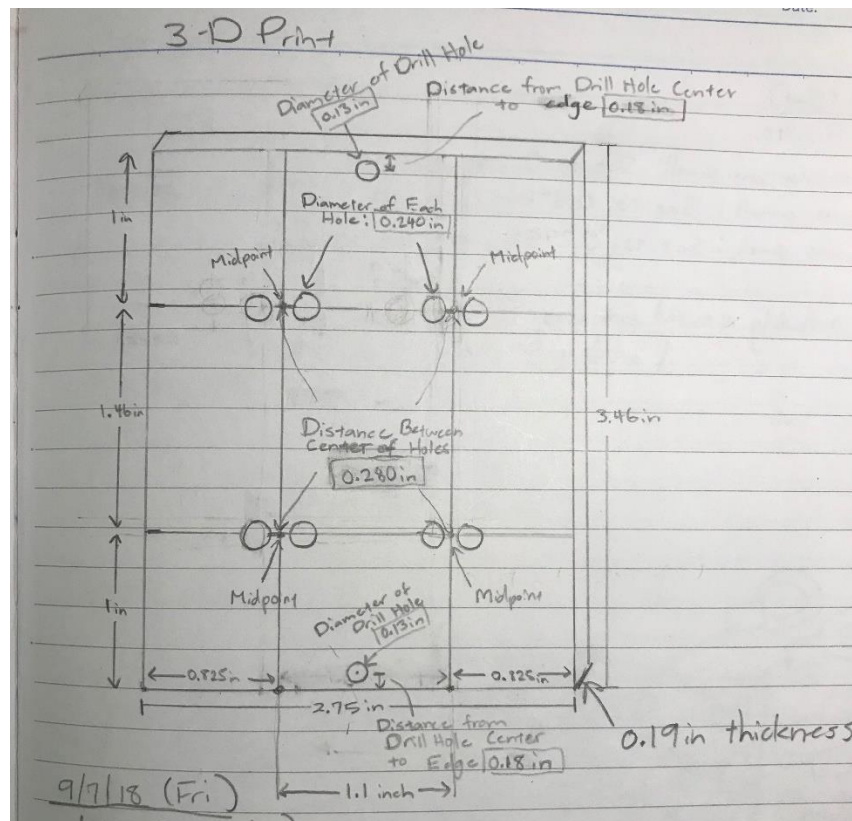 Date:
3-D Print
Diameter of Drill Hole
0.13in
Distance from Drill Hole Center
to edge 0.18 in
1in
Diameter of Each
Hole: 0.240in
Midpoint
Midpoint
1.46in
Distance Between
Center of Holes
0.280in
3.46in
Midpoint
Midpoint
1in
Diameter of
Drill Hole
0.13in
0.825in
0.825in
2.75in
Distance from
Drill Hole Center
to Edge 0.18 in
0.19in thickness
1.1 inch
9/7/18 (Fri)